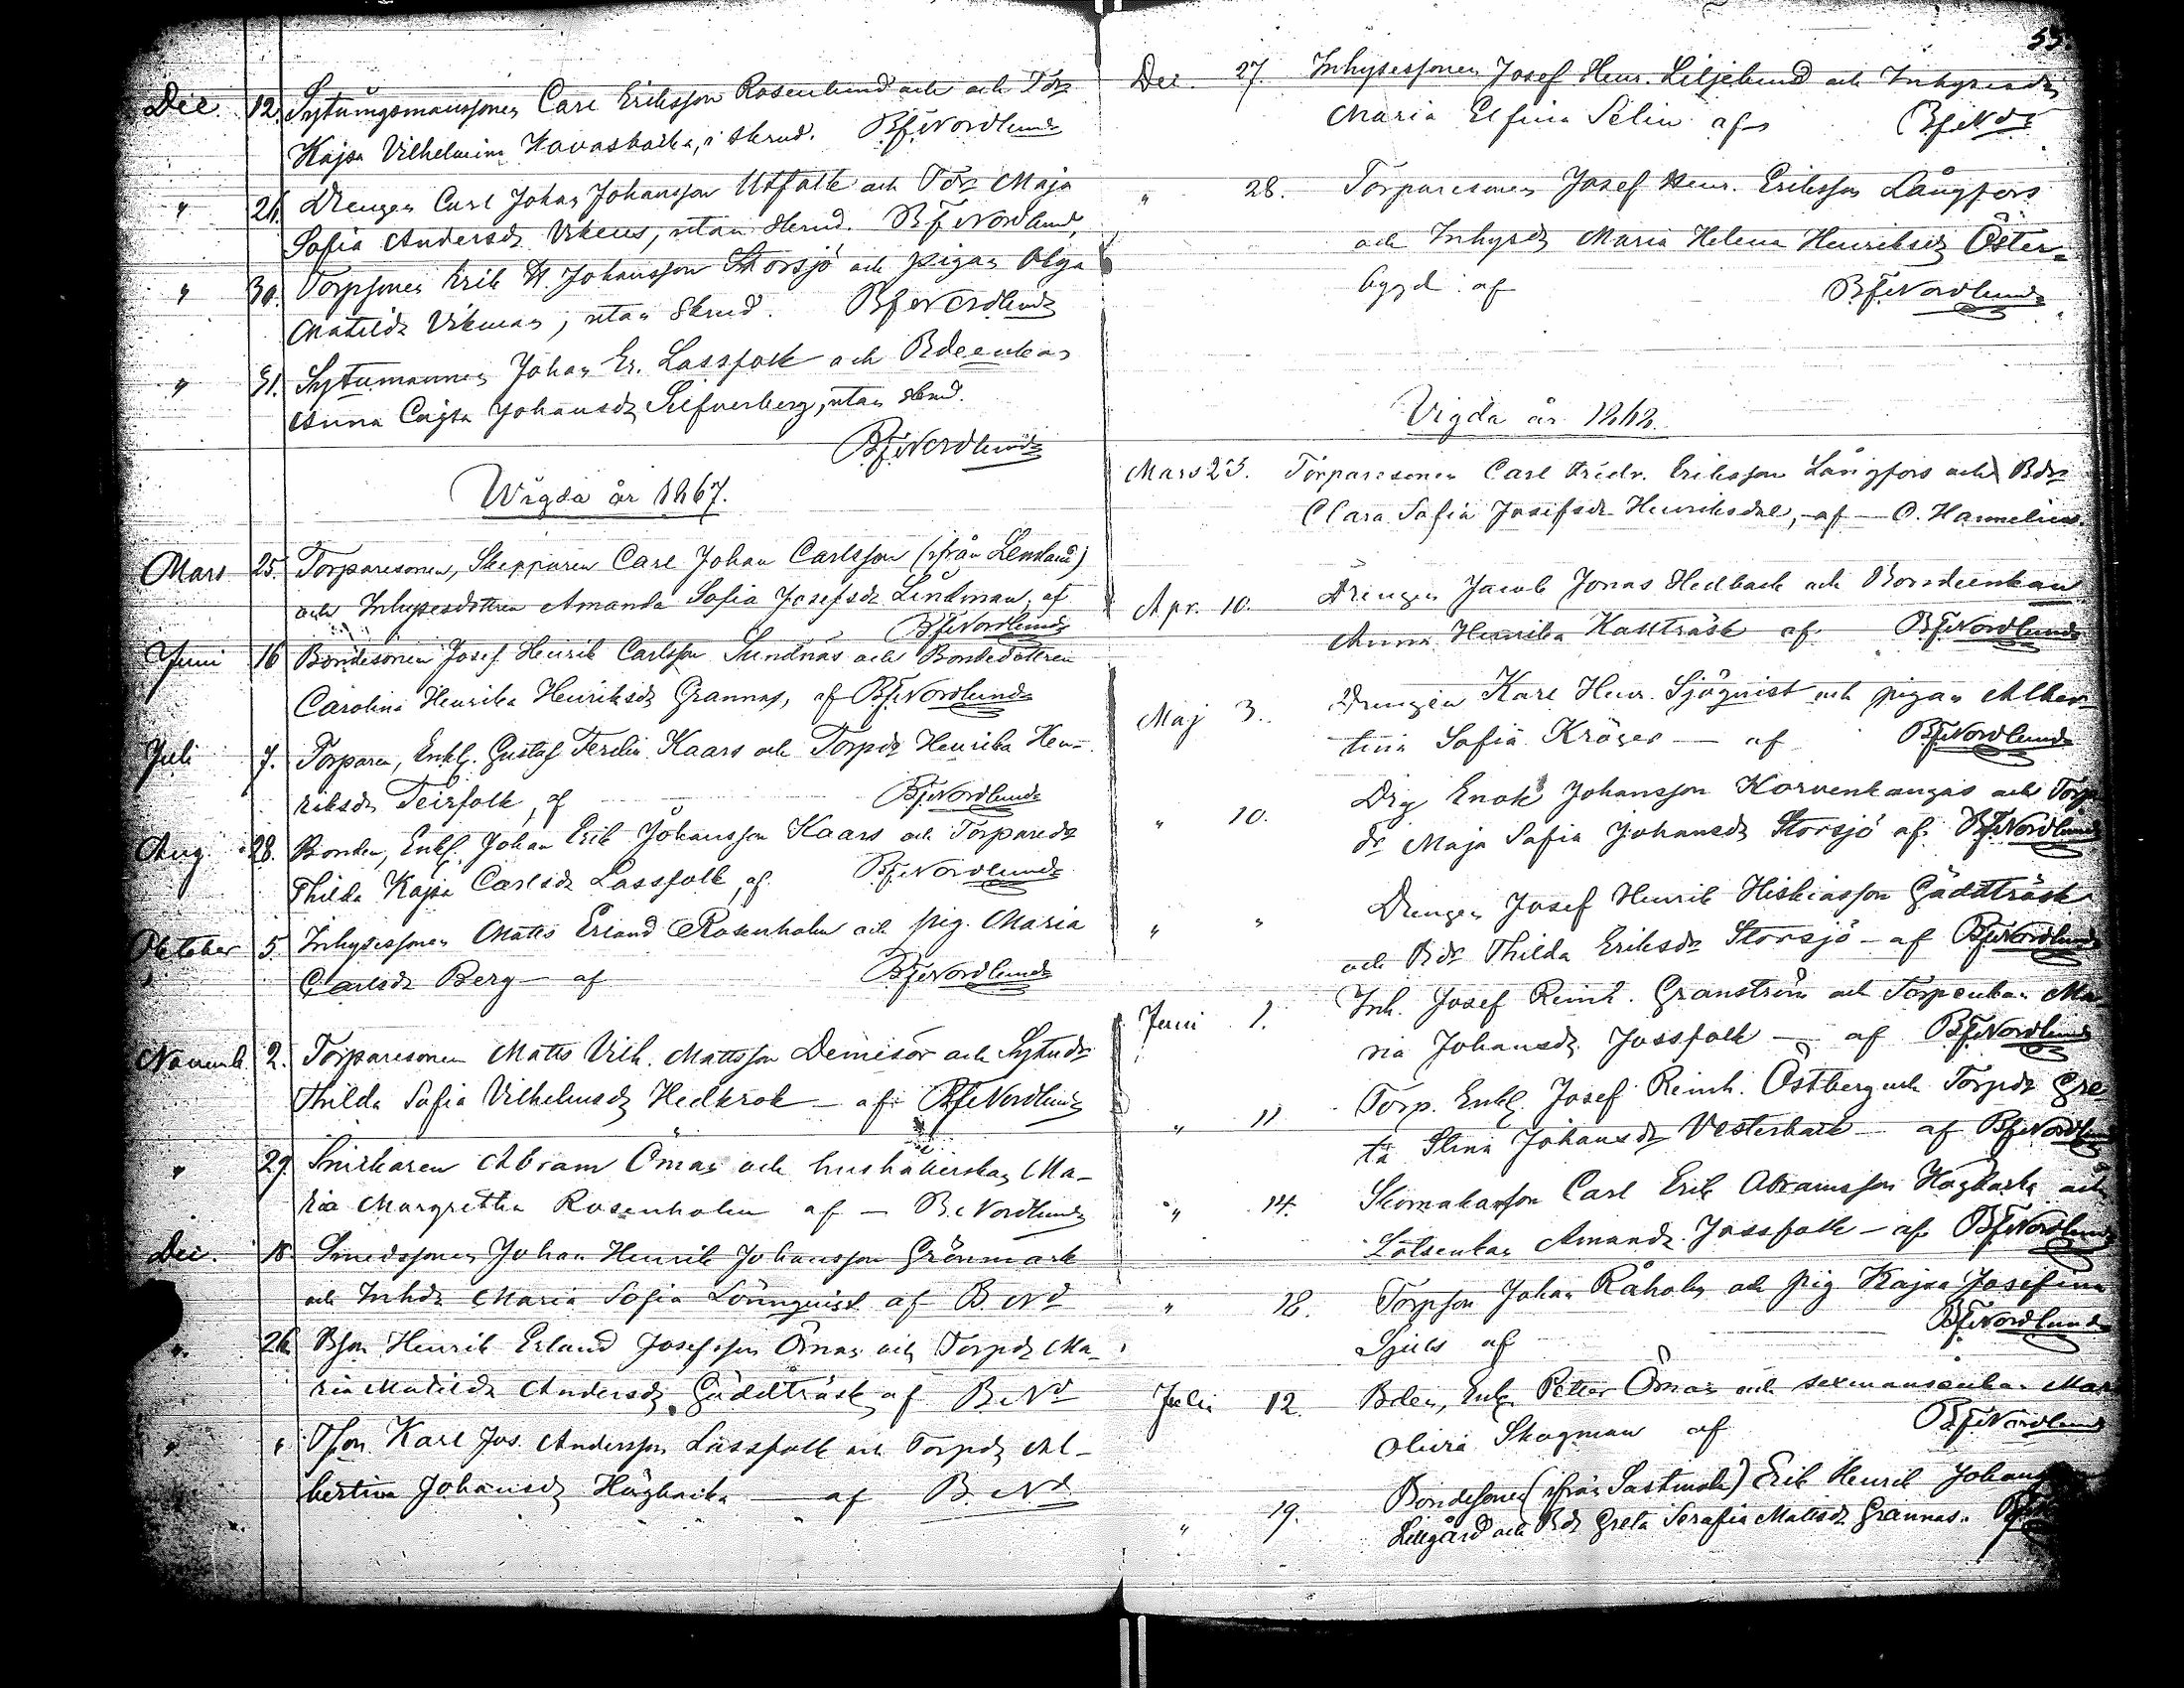 Dec. 12. Sytningsmanssonen Carl Eriksson Rosenlund och Tdr
Kajsa Vilhelmina Kovasbacka, i skrud. B.f. Nordlund
" 26. Drengen Carl Johan Johansson Utfolk och Tdr Maja
Sofia Andersdr utan skrud. B.f. Nordlund
" 30. Torpsonen Erik H. Johansson Storsjö och pigan Olga
Matilda Vikman, utan skrud. B.f. Nordlund
" 31. Sytumannen Johan Er. Lassfolk och Bdeenkan
Anna Cajsa Johansdr Silfverberg, utan skrud.
B.f. Nordlund
Wigda år 1867.
Mars 25. Torparesonen, Skepparen Carl Johan Carlsson (ifrån)
och Inhysesdottren Amanda Sofia Josefsdr Lindman, af
B.f. Nordlund
Juni 16 Bondesonen Josef Henrik Carlsson Sundnäs och Bondedottren
Carolina Henrika Henriksdr Grannas, af B.f. Nordlund
Juli 7. Torparen, Enkl. Gustaf Kaars och Torpdr Henrika Hen-
riksdr Teirfolk, af B.f. Nordlund
Aug. 28. Bonden, Enkl. Johan Erik Johansson Kaars och Torparedr
Thilda Kajsa Carlsdr Lassfolk, af B.f. Nordlund
Oktober 5 Inhysessonen Matts Erland Rosenholm och pig. Maria
Carlsdr Berg — af B.f. Nordlund
Novemb. 2. Torparesonen Matts Vilh. Mattsson Demisör och Sytndr
Thilda Sofia Vilhelmsdr Hedkrok — af B.f. Nordlund
" 29. Snickaren Abram Öman och hushållerskan Ma-
ria Margretha Rosenholm af — B. Nordlund
Dec. 18 Smedssonen Johan Henrik Johansson Grönmark
och Inhdr Maria Sofia Lönnquist af B. Nd
" 26 Bson Henrik Erland Josefsson Öman och Torpdr Ma-
ria Matilda Andersdr Gäddträsk af B. Nd
" " Tson Karl Jos. Andersson Lassfolk och Torpdr Al-
bertina Johansdr Högbacka — af B. Nd
53.
Dec. 27. Inhysessonen Josef Henr. Liljelund och Inhysesdr
Maria Elfina Selin af B.f. Nd
" 28. Torparesonen Josef Henr. Eriksson Långfors
och Inhysdr Maria Helena Henriksdr Öster-
bygd af B.f. Nordlund
Vigda år 1868.
Mars 23. Torparesonen Carl Fredr. Eriksson Långfors och Bdr
Clara Sofia Josefsdr Henriksdal, af — O. Hannelius
Apr. 10. Drengen Jacob Jonas Hedback och Bondeenkan
Anna Henrika Kallträsk af B.f. Nordlund
Maj 3. Drengen Karl Henr. Sjöquist och pigan Alber-
tina Sofia Kröger — af B.f. Nordlund
" 10. Drg Enok Johansson Korvenkangas och Torp
dr Maja Sofia Johansdr Storsjö af B.f. Nordlund
" " Drengen Josef Henrik Hiskiasson Gäddträsk
och Bdr Thilda Eriksdr Storsjö — af B.f. Nordlund
Juni 1. Inh. Josef Reinh. Granström och Torpenkan Ma-
ria Johansdr Jossfolk — af B.f. Nordlund
" 11 Torp. Enkl. Josef Reinh. Östberg och Torpdr Gre-
ta Stina Johansdr Vesterback — af B.f. Nordlund
" 14. Skomakarson Carl Erik Abramsson Högbacka och
Lotsenkan Amanda Jossfolk — af B.f. Nordlund
" 18. Torpson Johan Råholm och pig Kajsa Josefina
af B.f. Nordlund
Julii 12. Bden, Enkl. Petter Öman och sexmansenkan Mar
Olivia Skogman af B.f. Nordlund
" 19. Bondesonen (ifrån Sastmola) Erik Henrik Johans
Lillgård och Bdr Greta Serafia Mattsdr Grannas.